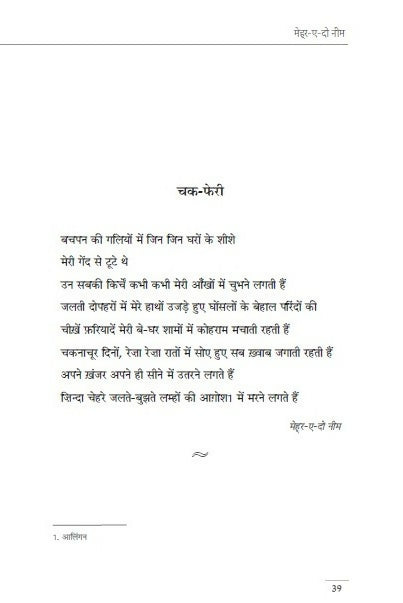 मेह्र-ए-दो नीम
चक-फेरी
बचपन की गलियों में जिन जिन घरों के शीशे
मेरी गेंद से टूटे थे
उन सबकी किर्चें कभी कभी मेरी आँखों में चुभने लगती हैं
जलती दोपहरों में मेरे हाथों उजड़े हुए घोंसलों के बेहाल परिंदों की
चीख़ें फ़रियादें मेरी बे-घर शामों में कोहराम मचाती रहती हैं
चकनाचूर दिनों, रेज़ा रेज़ा रातों में सोए हुए सब ख़्वाब जगाती रहती हैं
अपने ख़ंजर अपने ही सीने में उतरने लगते हैं
ज़िन्दा चेहरे जलते-बुझते लम्हों की आग़ोश1 में मरने लगते हैं
मेह्र-ए-दो नीम
1. आलिंगन
39